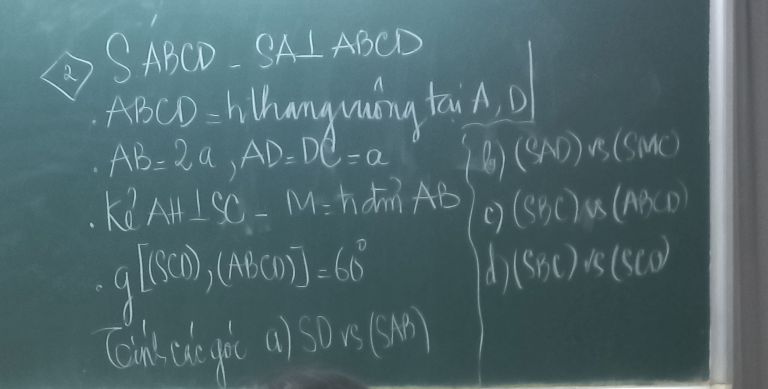 2 S ABCD - SA⊥ABCD
. ABCD = hthang vuông tại A, D
. AB = 2a, AD = DC = a
. Kẻ AH ⊥ SC - M = tr điểm AB
. g[(SCD), (ABCD)] = 60°
Tính các góc a) SD vs (SAB)
b) (SAD) vs (SMC)
c) (SBC) vs (ABCD)
d) (SBC) vs (SCD)